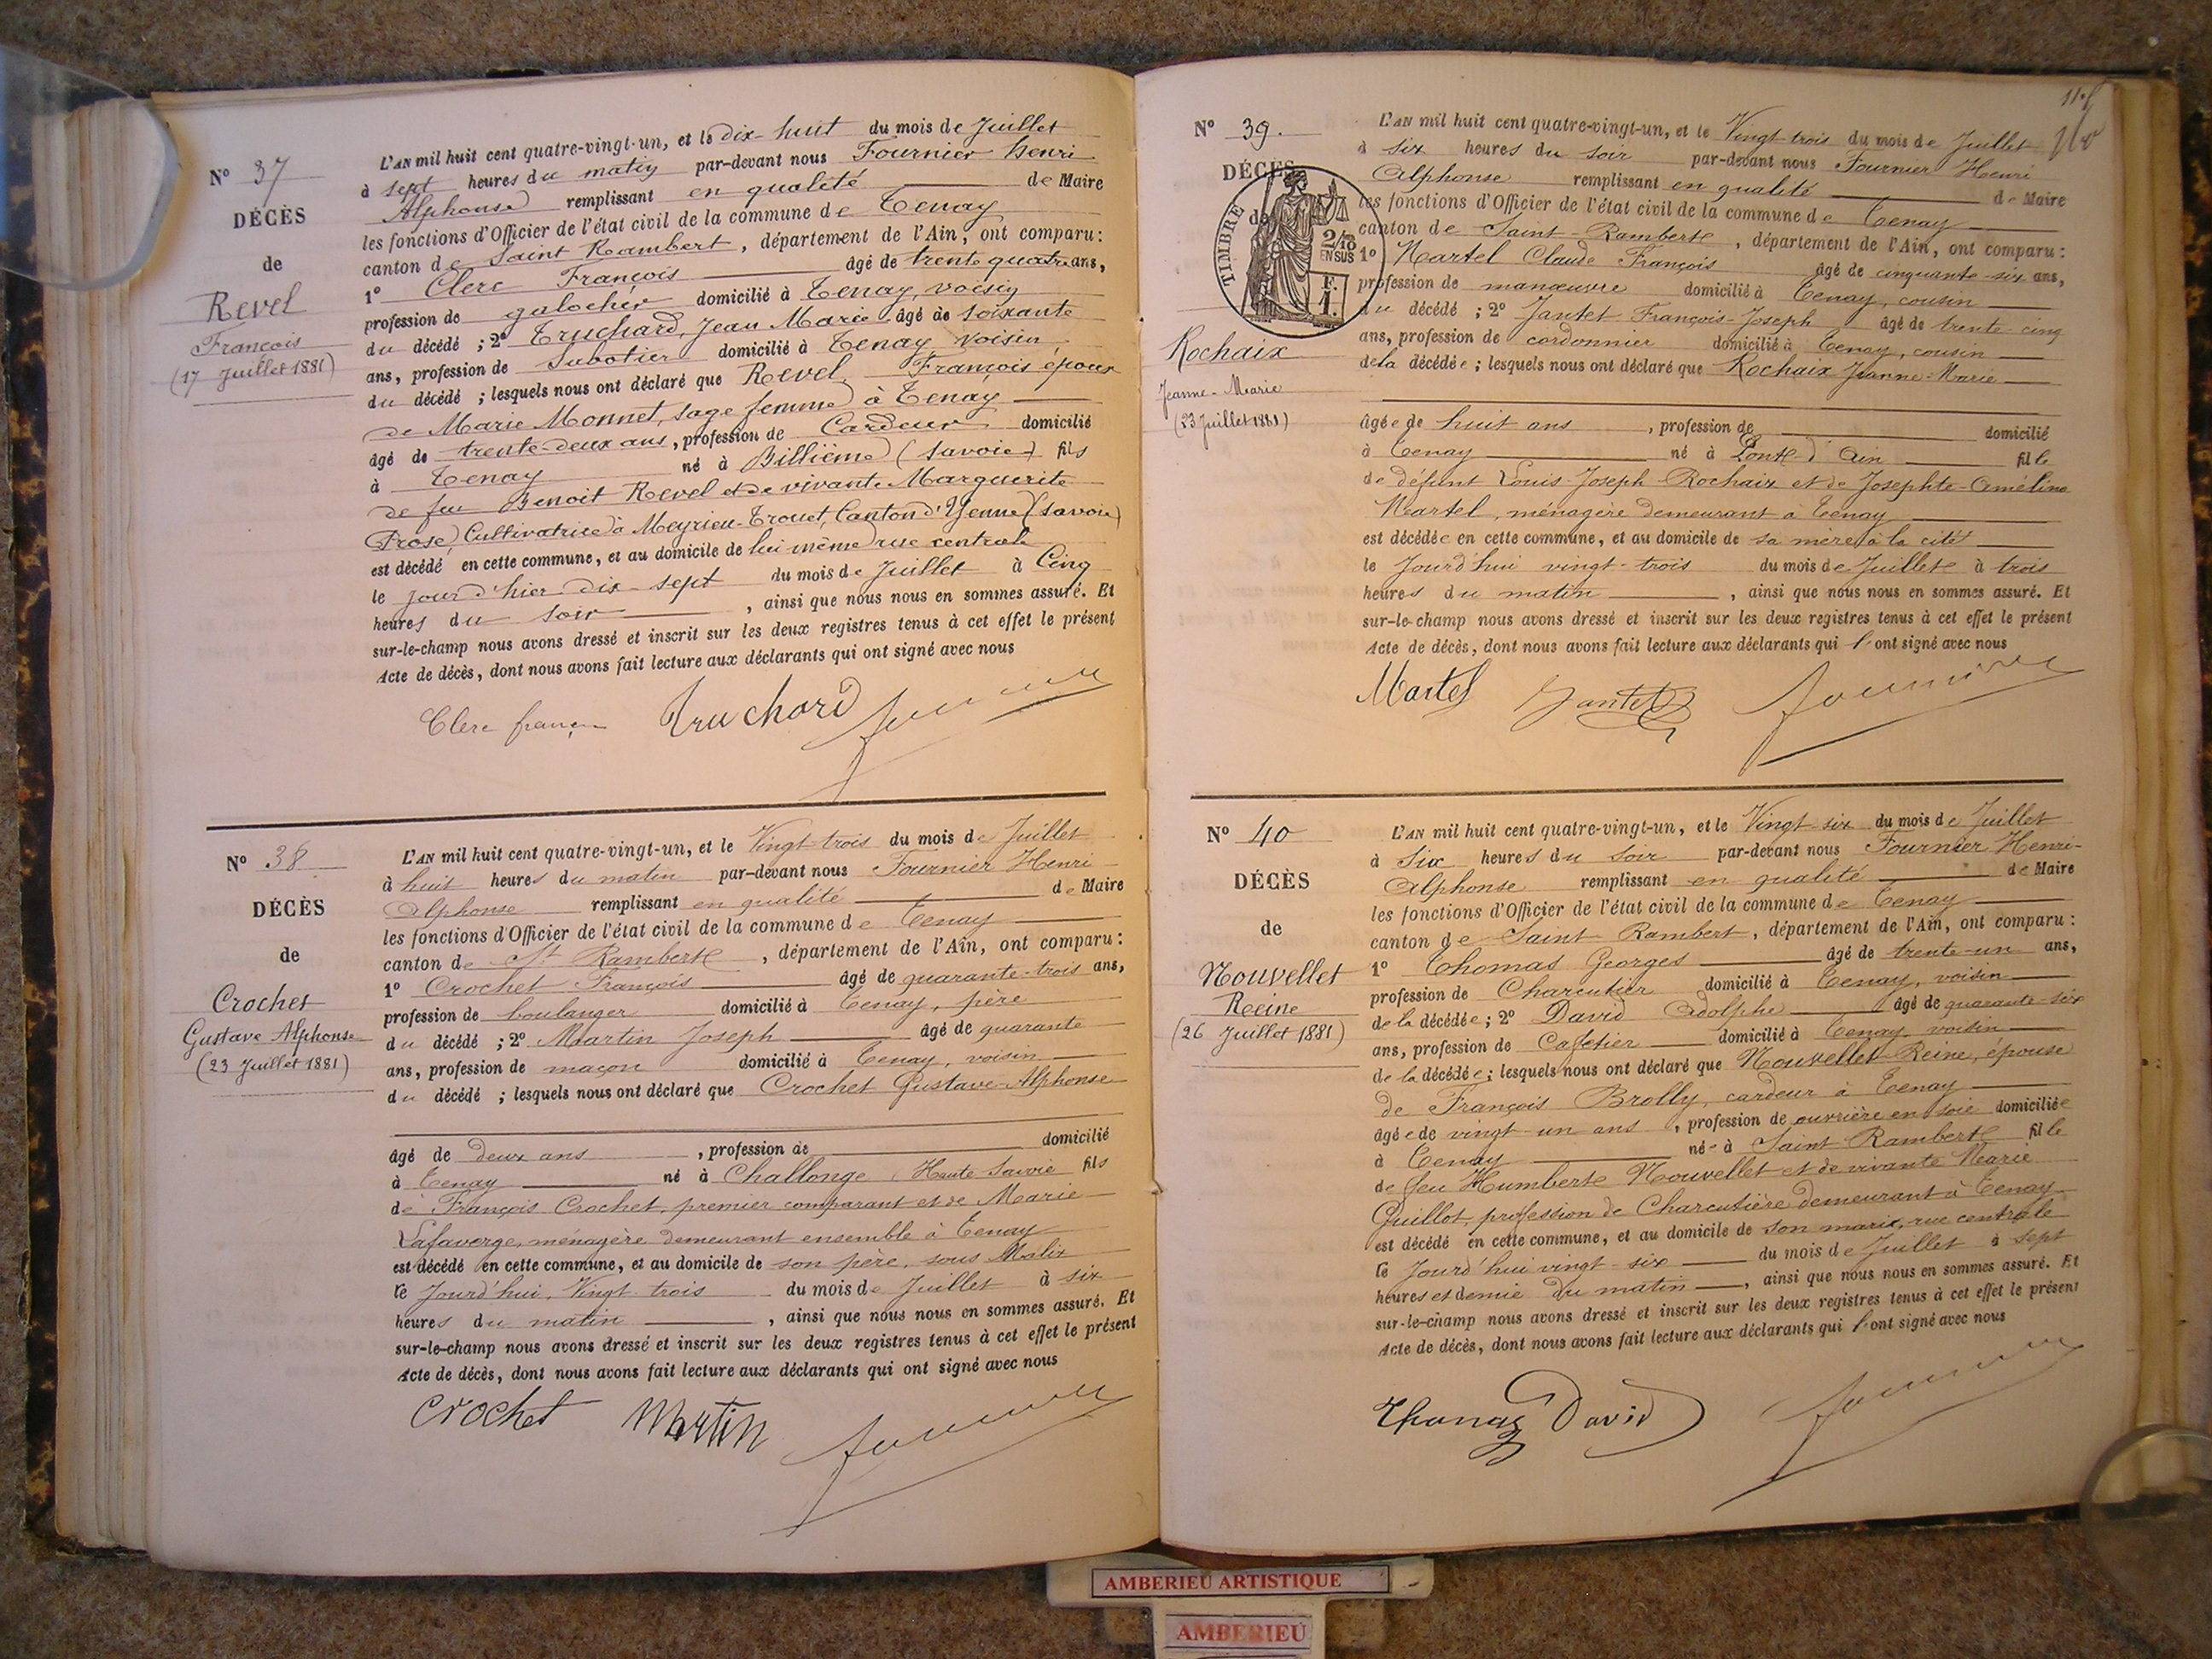 N° 37
DÉCÈS
de
Revel
François
(17 Juillet 1881)
L'AN mil huit cent quatre-vingt-un, et le dix-huit du mois de Juillet
à sept heures du matin par-devant nous Fournier Henri
Alphonse remplissant en qualité de Maire
les fonctions d'Officier de l'état civil de la commune de Tenay
canton de Saint Rambert, département de l'Ain, ont comparu:
1° Clerc François âgé de trente quatre ans,
profession de galocher domicilié à Tenay, voisin
du décédé ; 2° Truchard, Jean Marie âgé de soixante
ans, profession de Sabotier domicilié à Tenay voisin
du décédé ; lesquels nous ont déclaré que Revel François époux
de Marie Monnet, sage femme à Tenay
âgé de trente-deux ans, profession de Cardeur domicilié
à Tenay né à Billième (Savoie) fils
de feu Benoit Revel et de vivante Marguerite
Prose, Cultivatrice à Meyrieu-Trouet, Canton d'Yenne (Savoie)
est décédé en cette commune, et au domicile de lui même rue centrale
le jour d'hier dix-sept du mois de Juillet à Cinq
heures du soir, ainsi que nous nous en sommes assuré. Et
sur-le-champ nous avons dressé et inscrit sur les deux registres tenus à cet effet le présent
Acte de décès, dont nous avons fait lecture aux déclarants qui ont signé avec nous
Clerc françois Truchard
N° 38
DÉCÈS
de
Crochet
Gustave Alphonse
(23 Juillet 1881)
L'AN mil huit cent quatre-vingt-un, et le Vingt-trois du mois de Juillet
à huit heures du matin par-devant nous Fournier Henri
Alphonse remplissant en qualité de Maire
les fonctions d'Officier de l'état civil de la commune de Tenay
canton de St Rambert, département de l'Ain, ont comparu:
1° Crochet François âgé de quarante-trois ans,
profession de boulanger domicilié à Tenay, père
du décédé ; 2° Martin Joseph âgé de quarante
ans, profession de maçon domicilié à Tenay, voisin
du décédé ; lesquels nous ont déclaré que Crochet Gustave-Alphonse
âgé de deux ans, profession de domicilié
à Tenay né à Challonge Haute-Savoie fils
de François Crochet, premier comparant et de Marie
Lafaverge, ménagère demeurant ensemble à Tenay
est décédé en cette commune, et au domicile de son père, sous Malix
le Jourd'hui, Vingt-trois du mois de Juillet à six
heures du matin, ainsi que nous nous en sommes assuré. Et
sur-le-champ nous avons dressé et inscrit sur les deux registres tenus à cet effet le présent
Acte de décès, dont nous avons fait lecture aux déclarants qui ont signé avec nous
Crochet Martin
N° 39.
DÉCÈS
de
TIMBRE
2/10
EN SUS
F.
1.
Rochaix
Jeanne-Marie
(23 Juillet 1881)
L'AN mil huit cent quatre-vingt-un, et le Vingt-trois du mois de Juillet
à six heures du soir par-devant nous Fournier Henri
Alphonse remplissant en qualité de Maire
les fonctions d'Officier de l'état civil de la commune de Tenay
canton de Saint-Rambert, département de l'Ain, ont comparu:
1° Martel Claude François âgé de cinquante-six ans,
profession de manœuvre domicilié à Tenay, cousin
du décédé ; 2° Jantet François-Joseph âgé de trente cinq
ans, profession de cordonnier domicilié à Tenay, cousin
de la décédée ; lesquels nous ont déclaré que Rochaix Jeanne-Marie
âgée de huit ans, profession de domicilié
à Tenay né à Pont-d'Ain fille
de défunt Louis-Joseph Rochaix et de Josephte-Améline
Martel, ménagère demeurant à Tenay
est décédée en cette commune, et au domicile de sa mère à la cité
le Jourd'hui vingt-trois du mois de Juillet à trois
heures du matin, ainsi que nous nous en sommes assuré. Et
sur-le-champ nous avons dressé et inscrit sur les deux registres tenus à cet effet le présent
Acte de décès, dont nous avons fait lecture aux déclarants qui l'ont signé avec nous
Martel Jantet
N° 40
DÉCÈS
de
Nouvellet
Reine
(26 Juillet 1881)
L'AN mil huit cent quatre-vingt-un, et le Vingt-six du mois de Juillet
à Six heures du soir par-devant nous Fournier Henri-
Alphonse remplissant en qualité de Maire
les fonctions d'Officier de l'état civil de la commune de Tenay
canton de Saint Rambert, département de l'Ain, ont comparu:
1° Thomas Georges âgé de trente-un ans,
profession de Charcutier domicilié à Tenay, voisin
de la décédée; 2° David Adolphe âgé de quarante-six
ans, profession de Cafetier domicilié à Tenay voisin
de la décédée; lesquels nous ont déclaré que Nouvellet Reine, épouse
de François Brolly, cardeur à Tenay
âgée de vingt-un ans, profession de ouvrière en soie domiciliée
à Tenay née à Saint-Rambert fille
de feu Humbert Nouvellet et de vivante Marie
Guillot, profession de Charcutière demeurant à Tenay
est décédé en cette commune, et au domicile de son marie, rue centrale
le Jourd'hui vingt-six du mois de Juillet à sept
heures et demie du matin, ainsi que nous nous en sommes assuré. Et
sur-le-champ nous avons dressé et inscrit sur les deux registres tenus à cet effet le présent
Acte de décès, dont nous avons fait lecture aux déclarants qui l'ont signé avec nous
Thomas David
AMBERIEU ARTISTIQUE
AMBERIEU